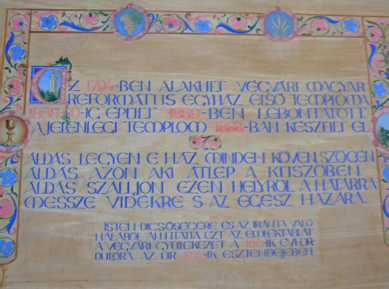 AZ 1794-BEN ALAKULT VÉGVÁRI MAGYAR
REFORMÁTUS EGYHÁZ ELSŐ TEMPLOMA
-IG ÉPÜLT -BEN LEBONTATOTT
A JELENLEGI TEMPLOM 1888-BAN KÉSZÜLT EL
ÁLDÁS LEGYEN E HÁZ MINDEN KÖVÉN SZÖGÉN
ÁLDÁS AZON AKI ÁTLÉP A KÜSZÖBÉN.
ÁLDÁS SZÁLLJON EZEN HELYRŐL A HATÁRRA
MESSZE VIDÉKRE S AZ EGÉSZ HAZÁRA.
ISTEN DICSŐSÉGÉRE ÉS AZ IRÁNTA VALÓ
HÁLÁBÓL ÁLLÍTTATTA EZT AZ EMLÉKTÁBLÁT
A VÉGVÁRI GYÜLEKEZET A -IK ÉVFOR-
DULÓRA, AZ ÚR -IK ESZTENDEJÉBEN.